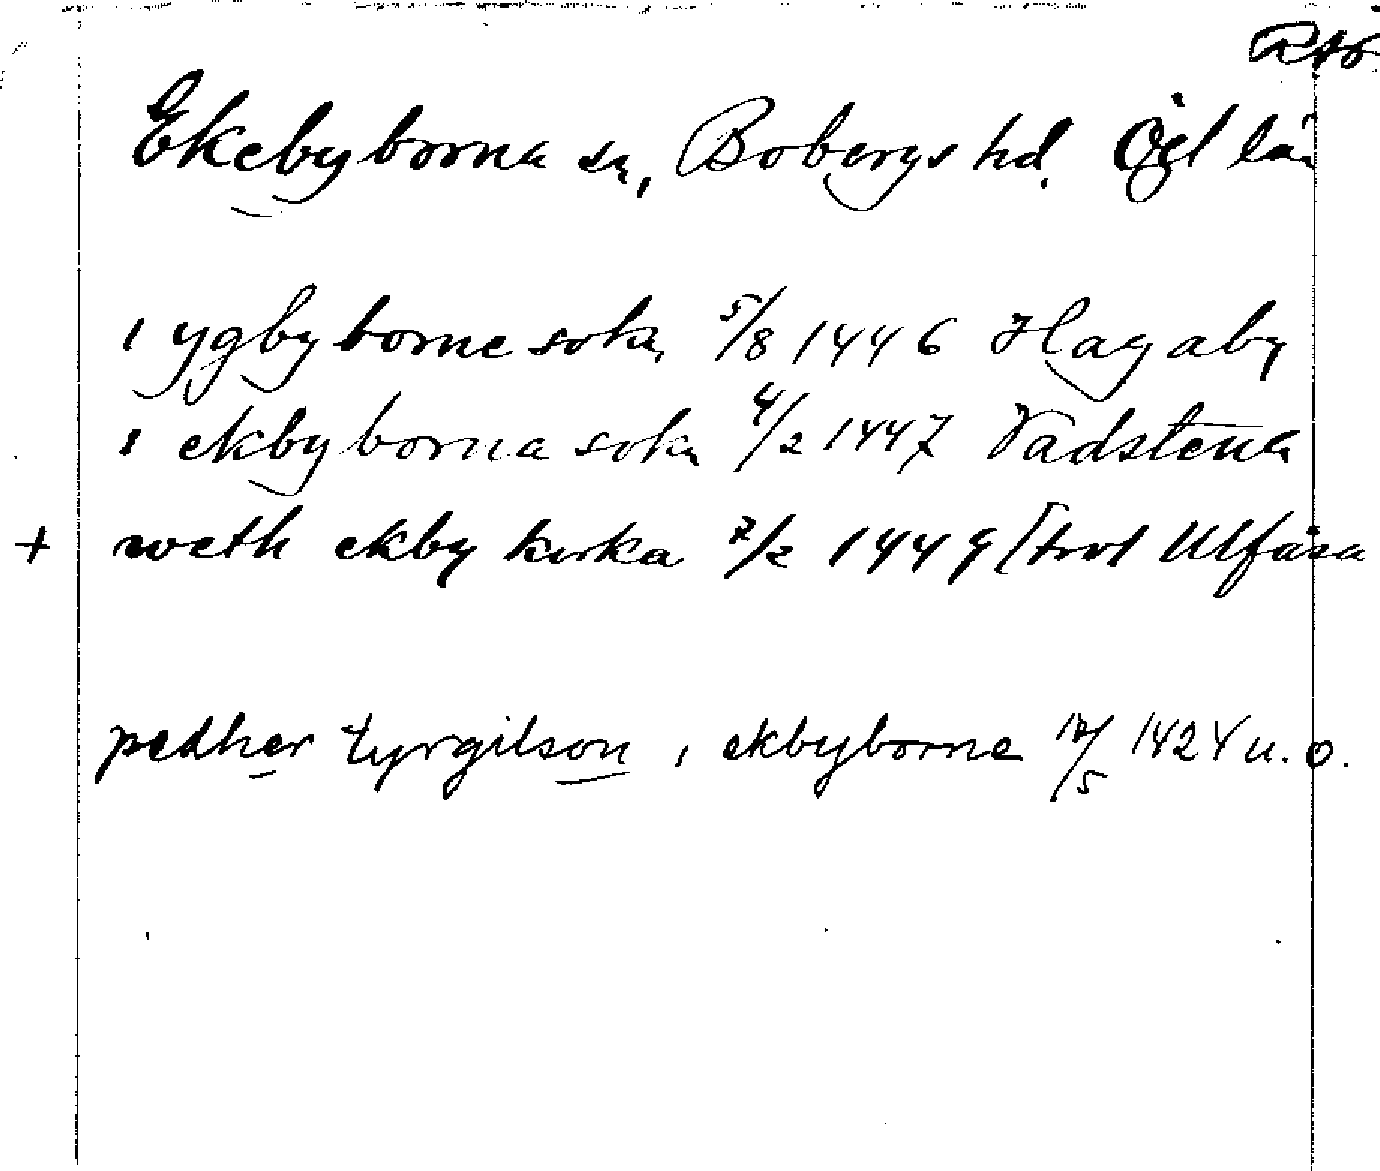 Ekebyborna sn, Bobergs hd. Ögl län
i ygbyborne sokn 5/8 1446 Hagaby
i ekbyborna sokn 4/2 1447 Vadstena
+ weth ekby kirka 2/2 1449 [trol Ulfåsa
pedher tyrgilson i ekbyborne 12/5 1424 u. o.